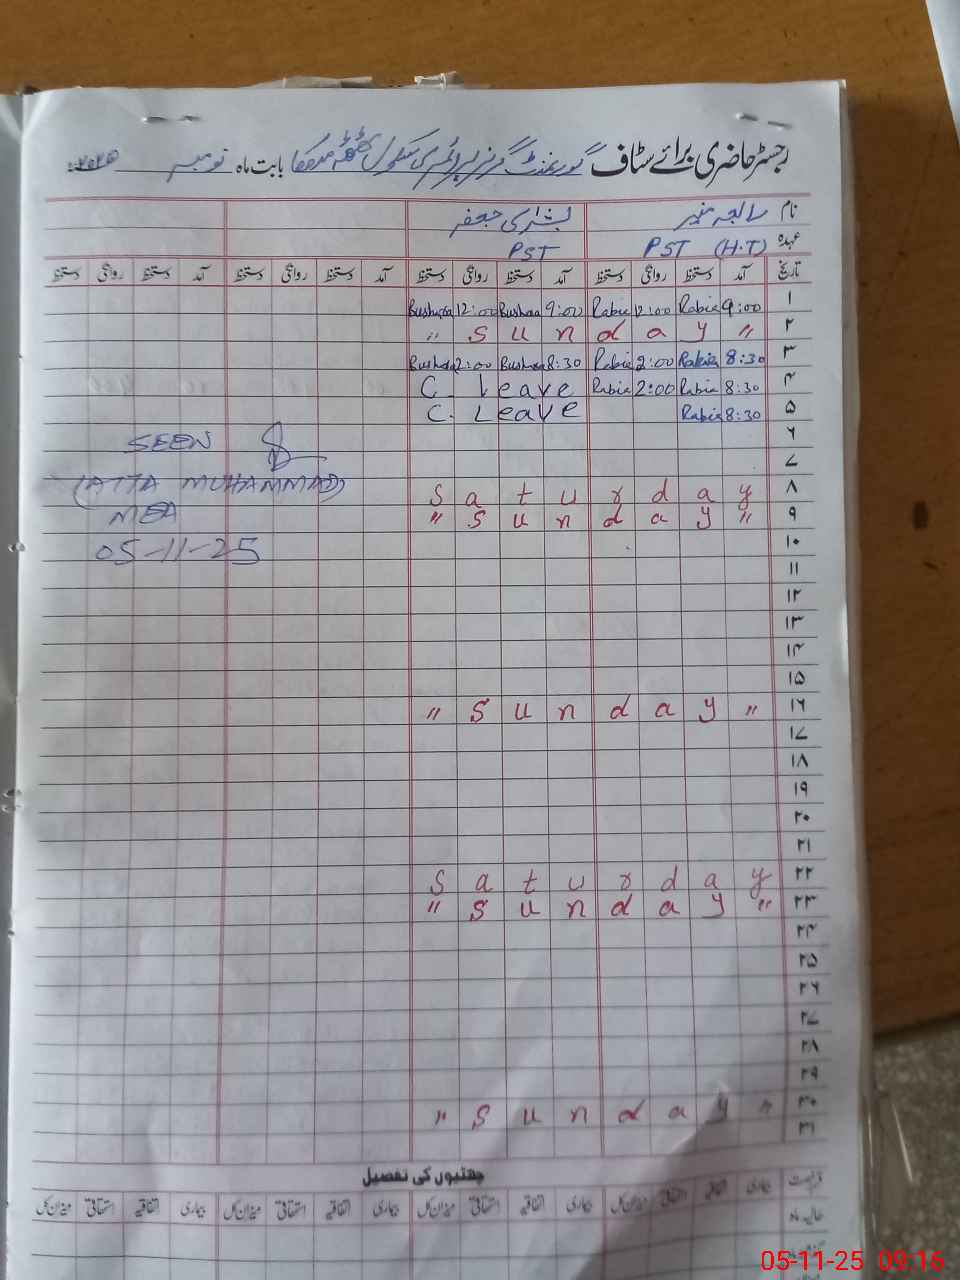 رجسٹر حاضری برائے سٹاف گورنمنٹ گرلز پرائمری سکول ٹھٹھہ بابت ماہ نومبر ۲۰۲۵ء
نام رابعہ منیر بشریٰ جعفر
عہدہ PST (H.T) PST
تاریخ آمد دستخط روانگی دستخط آمد دستخط روانگی دستخط آمد دستخط روانگی دستخط آمد دستخط روانگی دستخط
۱ 9:00 Rabia 12:00 Rabia 9:00 Bushra 12:00 Bushra
۲ " S u n d a y "
۳ 8:30 Rabia 2:00 Rabia 8:30 Bushra 2:00 Bushra
۴ 8:30 Rabia 2:00 Rabia C. Leave
۵ 8:30 Rabia C. Leave
۶
۷
۸ S a t u r d a y
۹ " S u n d a y "
۱۰
۱۱
۱۲
۱۳
۱۴
۱۵
۱۶ " S u n d a y "
۱۷
۱۸
۱۹
۲۰
۲۱
۲۲ S a t u r d a y
۲۳ " S u n d a y "
۲۴
۲۵
۲۶
۲۷
۲۸
۲۹
۳۰ " S u n d a y "
۳۱
SEEN
(ATTA MUHAMMAD)
MEA
05-11-25
چھٹیوں کی تفصیل
رخصت بیماری اتفاقیہ استحقاقی میزان کل بیماری اتفاقیہ استحقاقی میزان کل بیماری اتفاقیہ استحقاقی میزان کل بیماری اتفاقیہ استحقاقی میزان کل
حالیہ ماہ
05-11-25 09:16